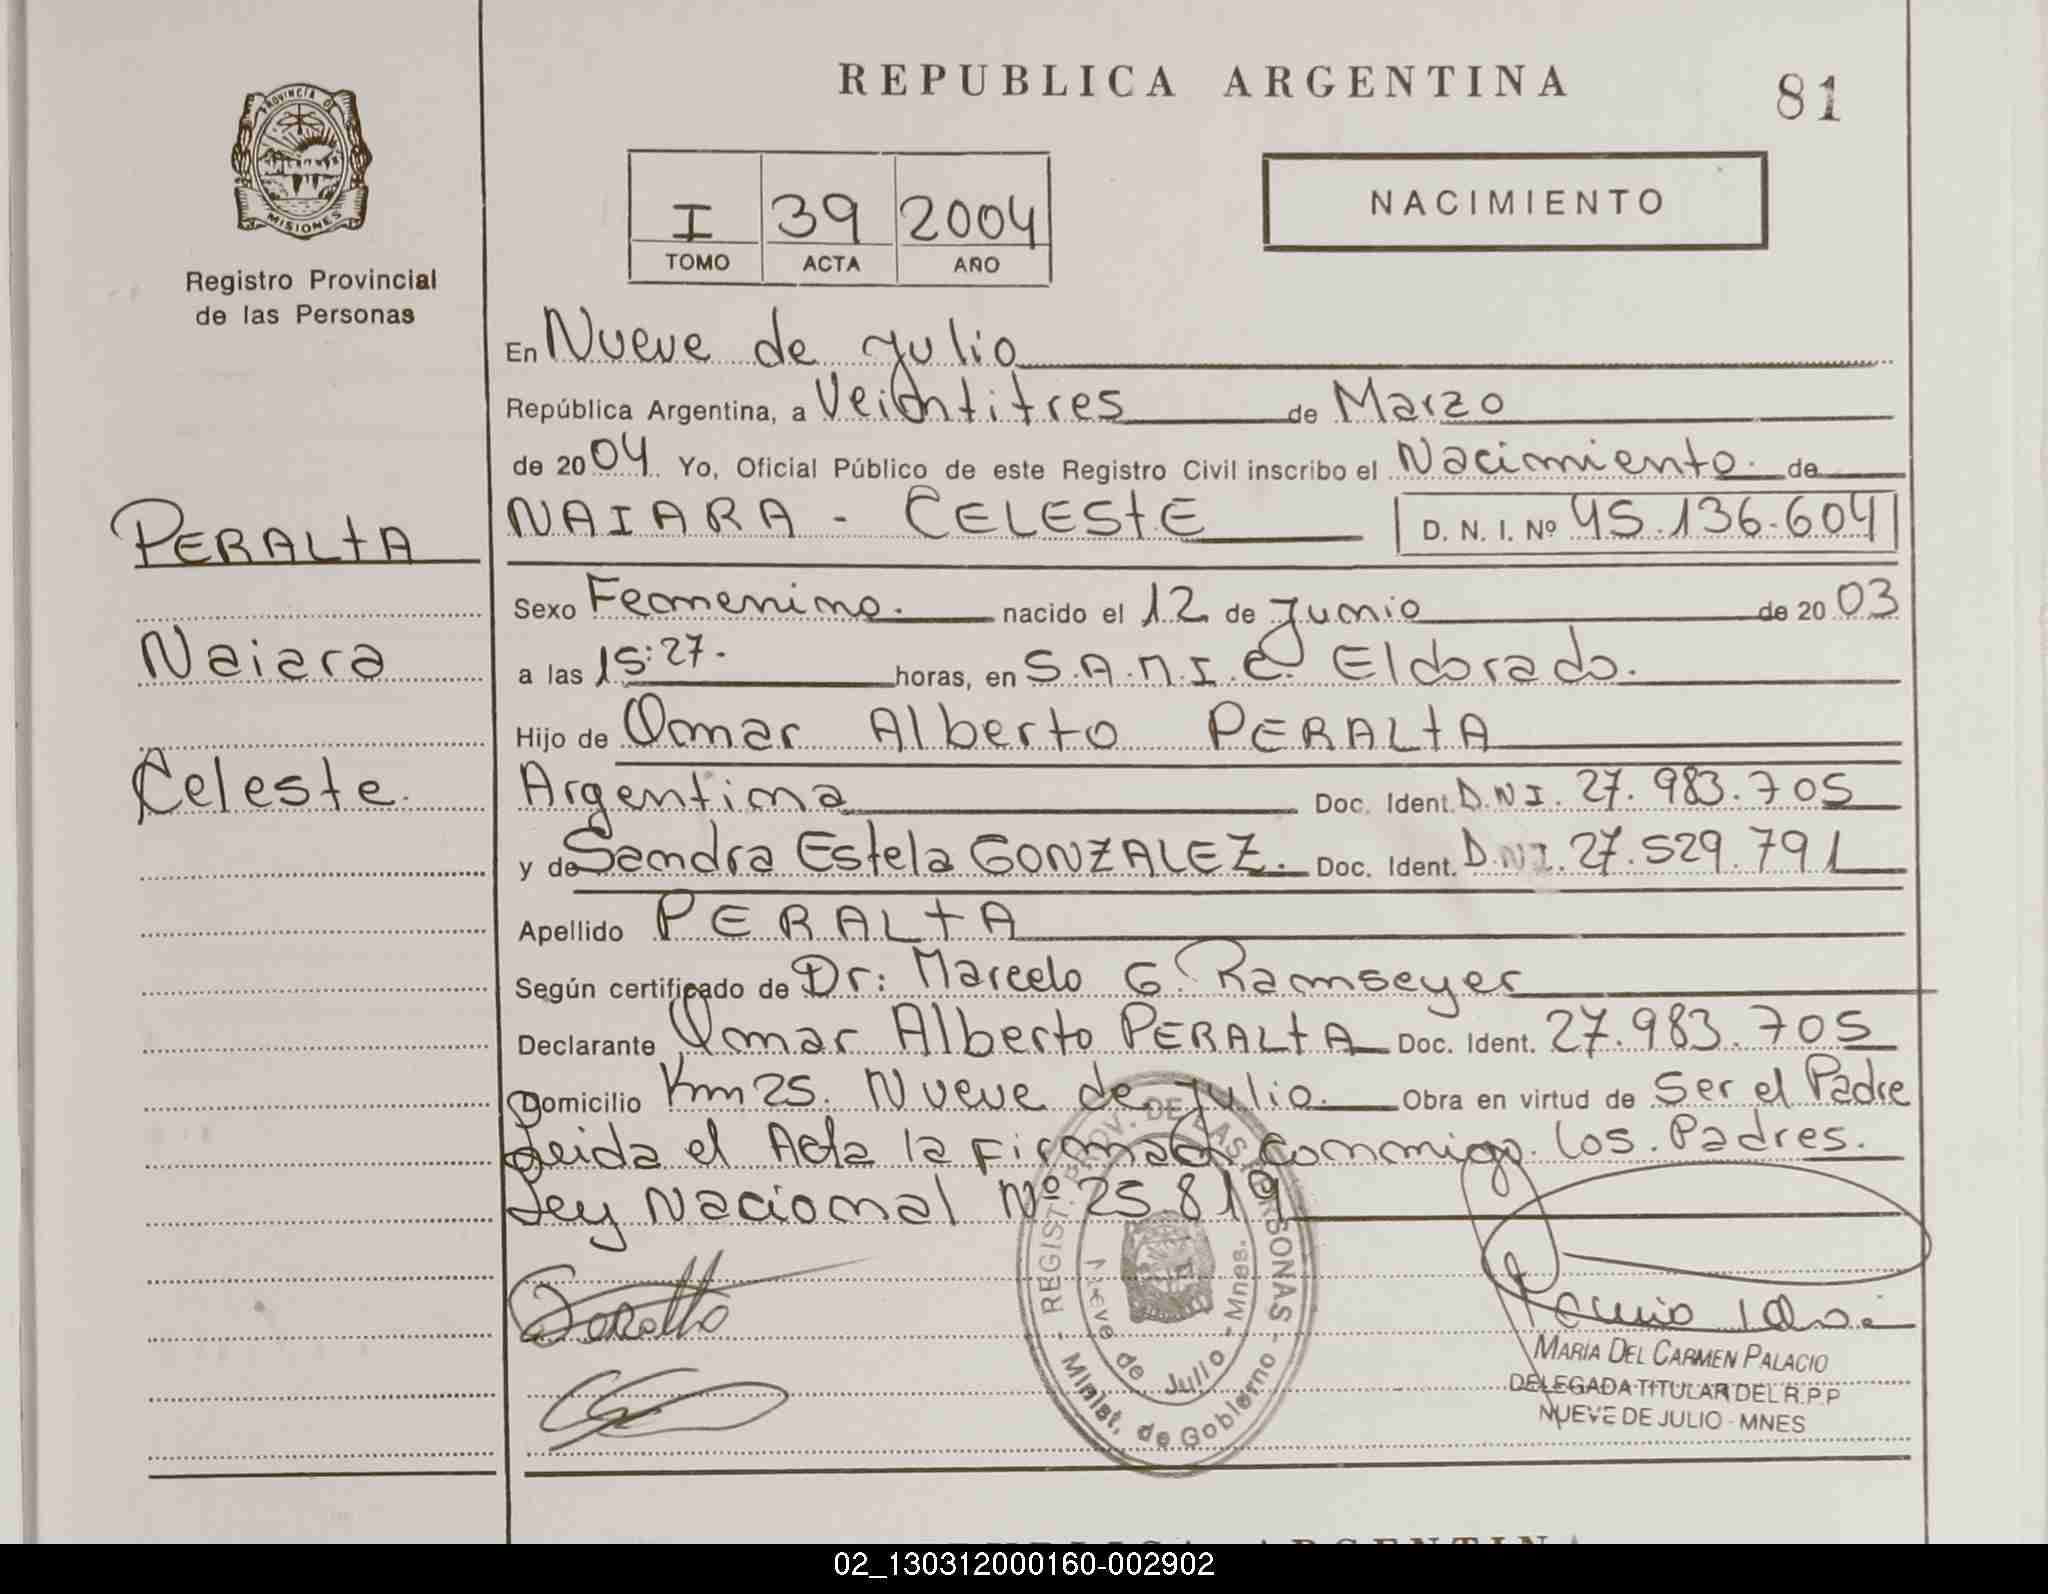 REPUBLICA ARGENTINA
81
PROVINCIA D
MISIONES
Registro Provincial
de las Personas
I 39 2004
TOMO ACTA AÑO
NACIMIENTO
En Nueve de Julio
República Argentina, a Veintitres de Marzo
de 2004 Yo, Oficial Público de este Registro Civil inscribo el Nacimiento de
NAIARA - CELESTE D. N. I. Nº 45.136.604
PERALTA
Sexo Femenino. nacido el 12 de Junio de 2003
Naiara
a las 15:27. horas, en S.A.M.I.C. Eldorado.
Hijo de Omar Alberto PERALTA
Celeste.
Argentina Doc. Ident. D.N.I. 27.983.705
y de Sandra Estela GONZALEZ. Doc. Ident. D.NI. 27.529.791
Apellido PERALTA
Según certificado de Dr: Marcelo G. Ramseyer
Declarante Omar Alberto PERALTA Doc. Ident. 27.983.705
Domicilio Km 25. Nueve de Julio. Obra en virtud de Ser el Padre
Leida el Acta la Firman conmigo. los. Padres.
Ley Nacional Nº 25819
REGIST. PROV. DE LAS PERSONAS - Minist. de Gobierno -
Nueve de Julio - Mnes.
MARÍA DEL CARMEN PALACIO
DELEGADA TITULAR DEL R.P.P
NUEVE DE JULIO - MNES
02_130312000160-002902